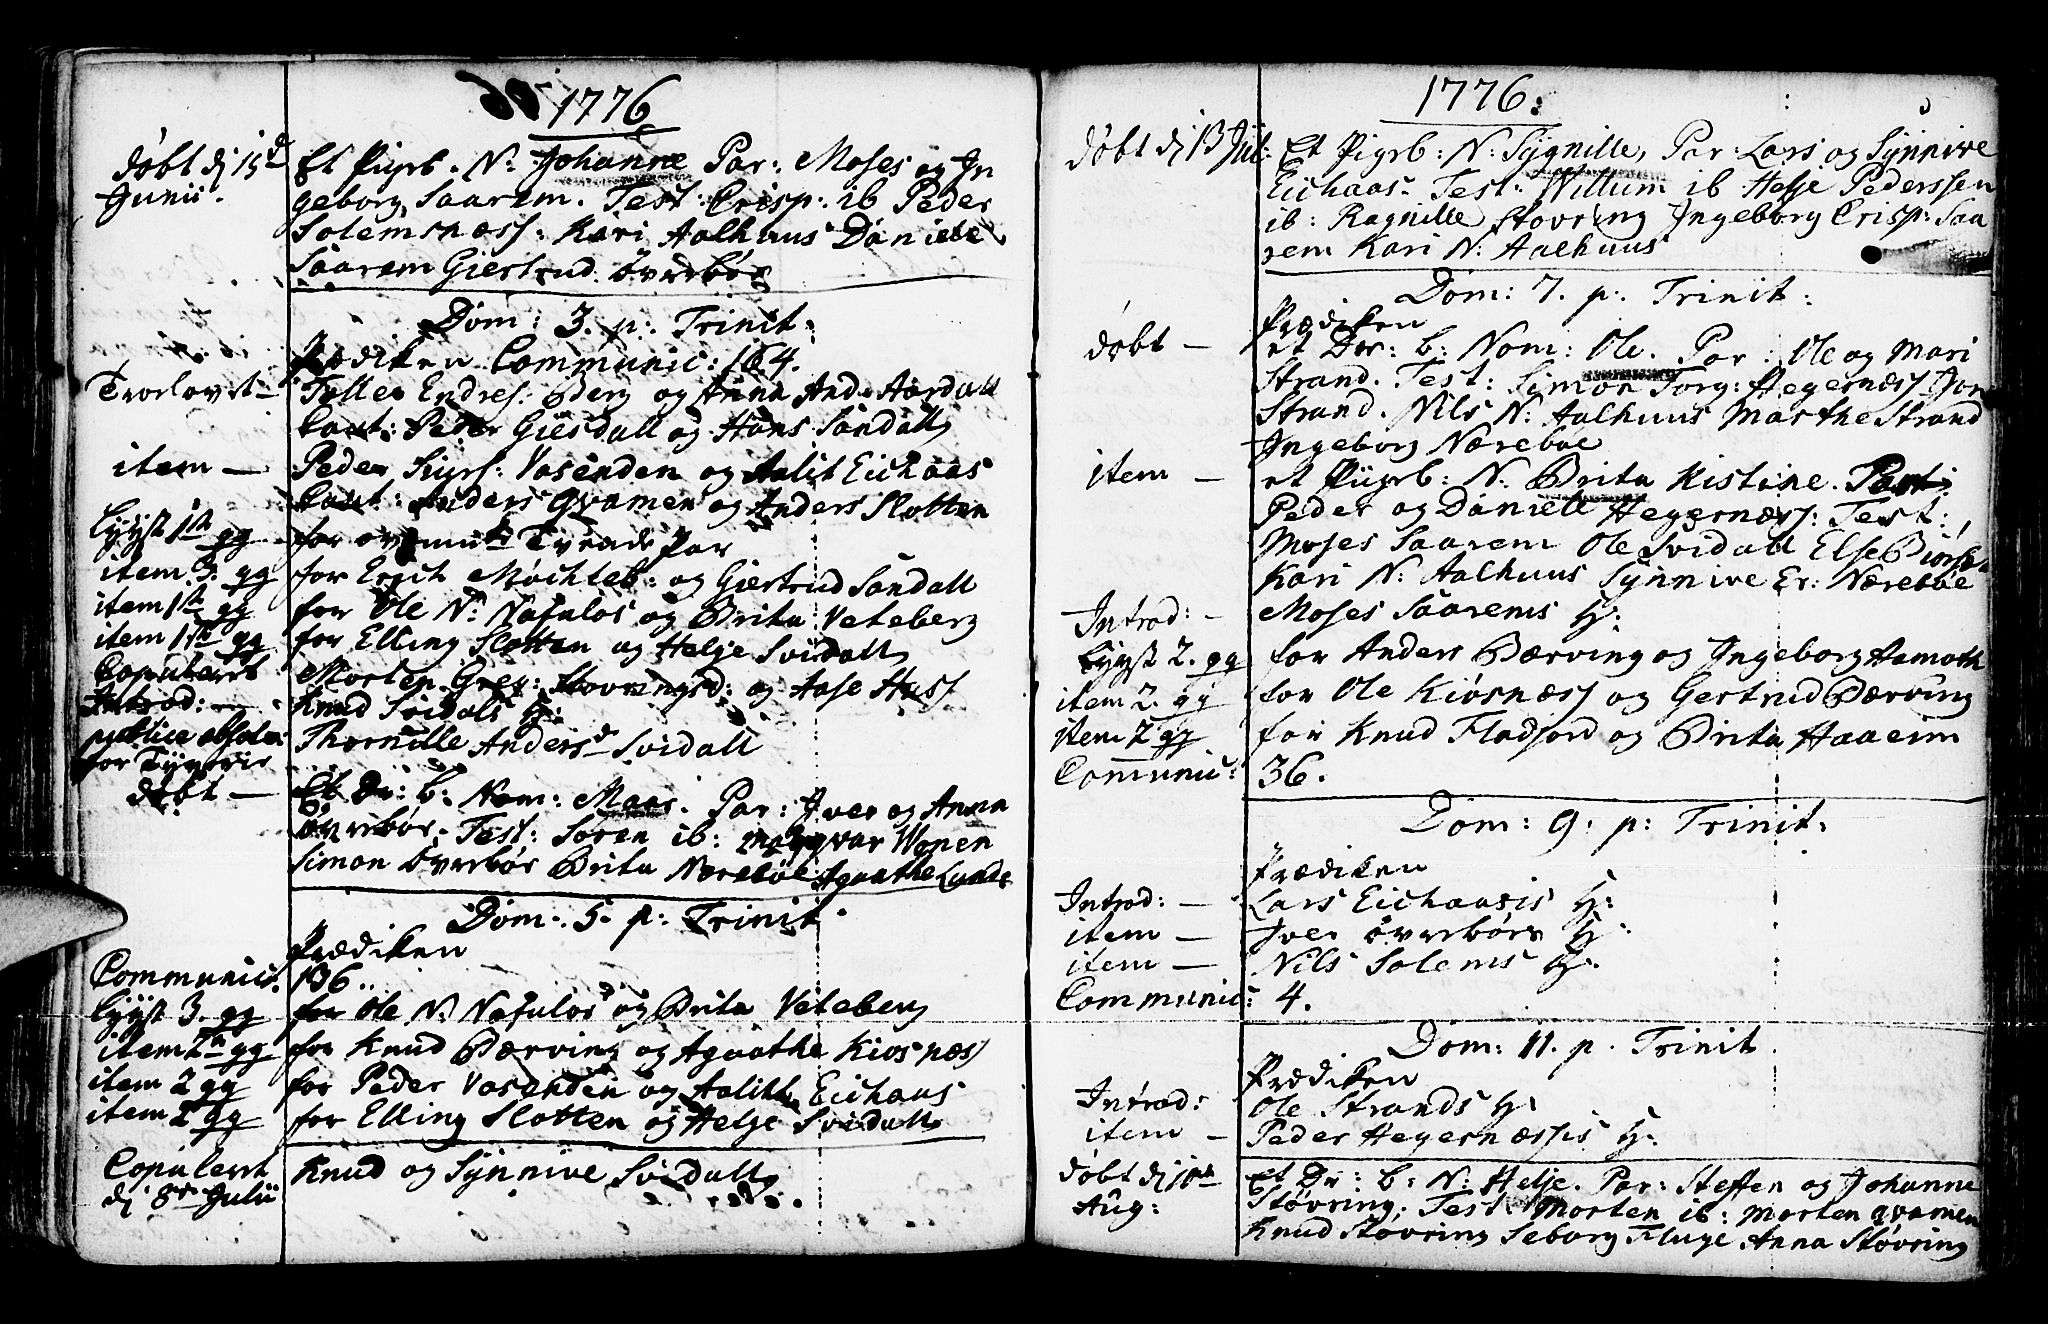 1776
døbt d 15d Et Pigeb. N: Johanne Par: Moses og In
Junii. geborg Saarem. Test: Crisp: ib Peder
Solemsnæss: Kari Aalhuus Daniele
Saarem Giertrud Øvrebøe
Dom: 3. p: Trinit:
Prædiken Communic: 164.
Trolovet — Tolle Endres: Berg og Anna And: Aardall
Caut: Peder Giesdall og Hans Sandall
item — Peder Siurs: Vasenden og Aalit Eichaas
Caut: Anders Qvamen og Anders Slotten
Lyyst 1te gg for Tvende Par
item 3. gg for Erich Møchleb: og Giertrud Sandall
item 1te gg for Ole N: Nafulos og Brita Veteberg
item 1te gg for Elling Slotten og Helje Svidall
Copuleret Morten Greg: Stovringsd: og Aase Huss
Introd: — Knud Svidals H:
publice absolv: Thornille Andersd Svidall
for Tyverie
døbt — Et Dr: b: Nom: Maas. Par: Iver og Anna
Øvrebøe. Test: Søren ib: Wonen
Simon Øvrebøe Brita Nærebøe Agaathe Lunde
Dom. 5. p: Trinit.
Prædiken
Communic. 136..
Lyyst 3. gg for Ole N: Nafulos og Brita Veteberg
item gg for Knud Bærving og Agaathe Kiosnæss
item 2 gg for Peder Vasenden og Aalith Eichaas
item 2 gg for Elling Slotten og Helje Svidall
Copuleret Knud og Synnive Svidall
d 8de Julii
1776:
døbt d 13 Jul: Et Pigeb: N: Sygnille, Par: Lars og Synnive
Eichaas. Test: Willum ib Helje Pederssen
ib: Ragnille Stovring Ingeborg Crisp: Saa
rem Kari N: Aalhuus
Dom: 7. p: Trinit:
Prædiken
døbt — et Dr: b: Nom: Ole. Par: Ole og Mari
Strand. Test: Simon Torg: Hegernæss Jon
Strand. Nils N: Aalhuus Marthe Strand
Ingeborg Nærebøe
item — et Pigeb: N: Brita Kistine. Par:
Peder og Daniele Hegernæss: Test:
Moses Saarem Ole Svidall Else
Kari N: Aalhuus Synnive Er: Nærebøe
Introd: — Moses Saarems H:
Lyyst 2. gg for Anders Bærving og Ingeborg Hamoth
item 2. gg for Ole Kiøsnæss og Gertrud Bærving
item 2 gg for Knud Fladjord og Brita Haaeim
Communic: 36.
Dom: 9. p: Trinit:
Prædiken
Introd: — Lars Eichaasis H:
item — Iver Øvrebøes H:
item — Nils Solems H:
Communic: 4.
Dom: 11. p. Trinit.
Prædiken
Introd: Ole Strands H:
item — Peder Hegernæssis H:
døbt d 10de Et Dr: b: N: Helje. Par: Steffen og Johanne
Aug: Støvring. Test Morten ib: Morten Qvamen
Knud Støvring Seborg Fluge Anna Støvring